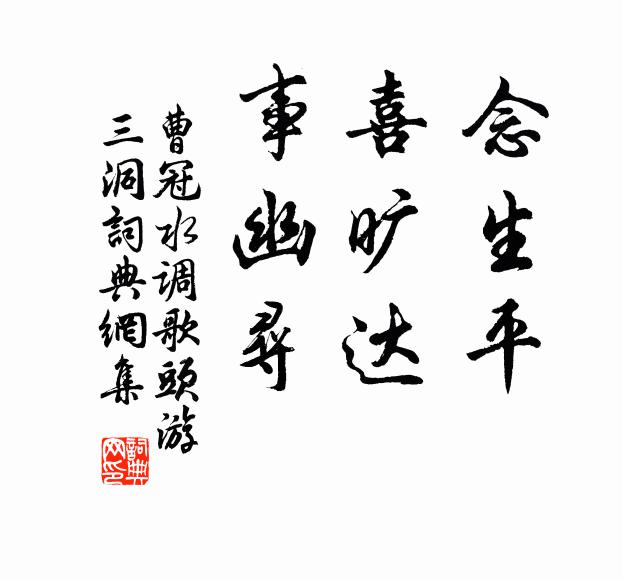 念生平
喜旷达
事幽寻
曹冠水调歌头游
三洞詞典網集
詞典
网印